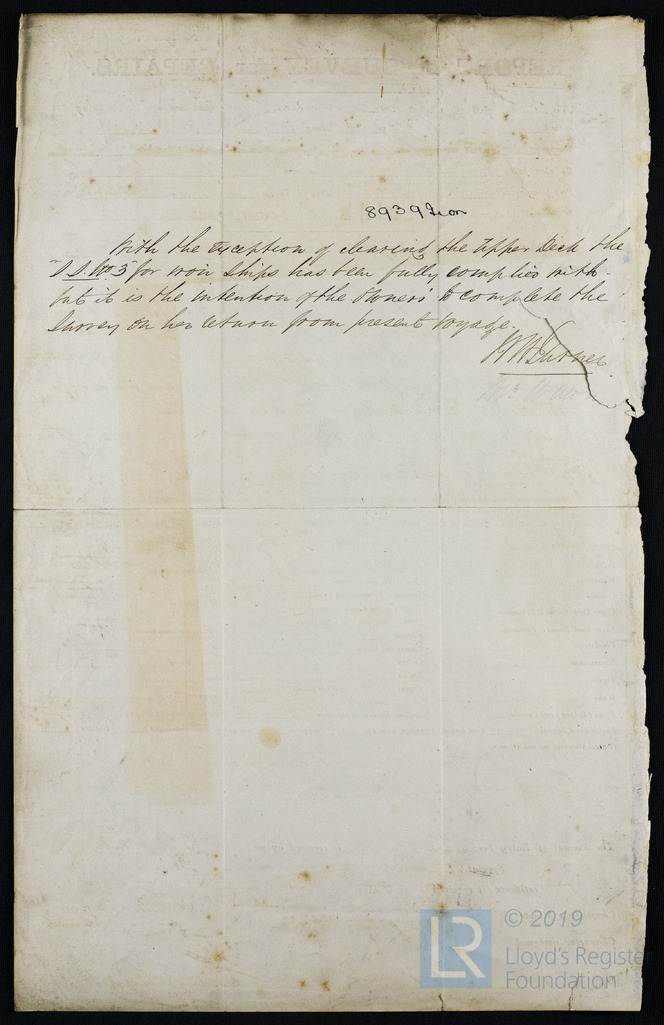 8939 Iron
With the exception of clearing the Upper Deck the
"S.S. No 3" for iron Ships has been fully complied with -
but it is the intention of the Owners to complete the
Survey on her return from present voyage.
LR
© 2019
Lloyd's Register
Foundation